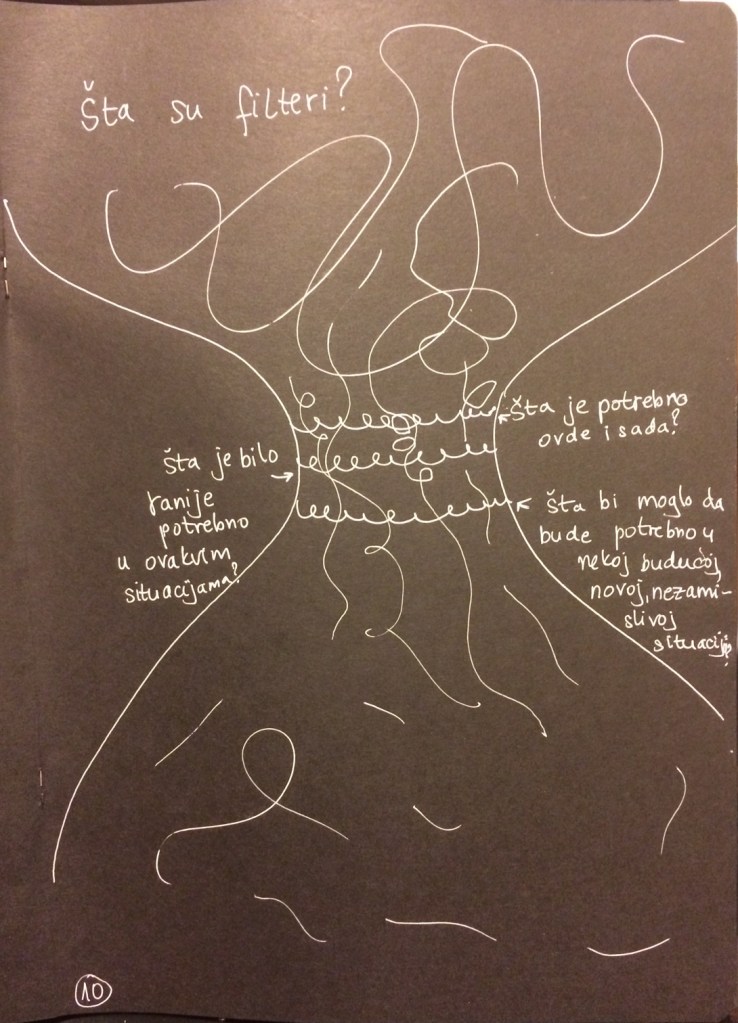 Šta su filteri?
šta je potrebno
ovde i sada?
šta je bilo
ranije
potrebno
u ovakvim
situacijama?
šta bi moglo da
bude potrebno u
nekoj budućoj,
novoj, nezami-
slivoj
situaciji?
10